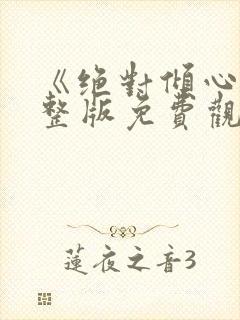 《絕對傾心
整版免費觀
蓮夜之音3